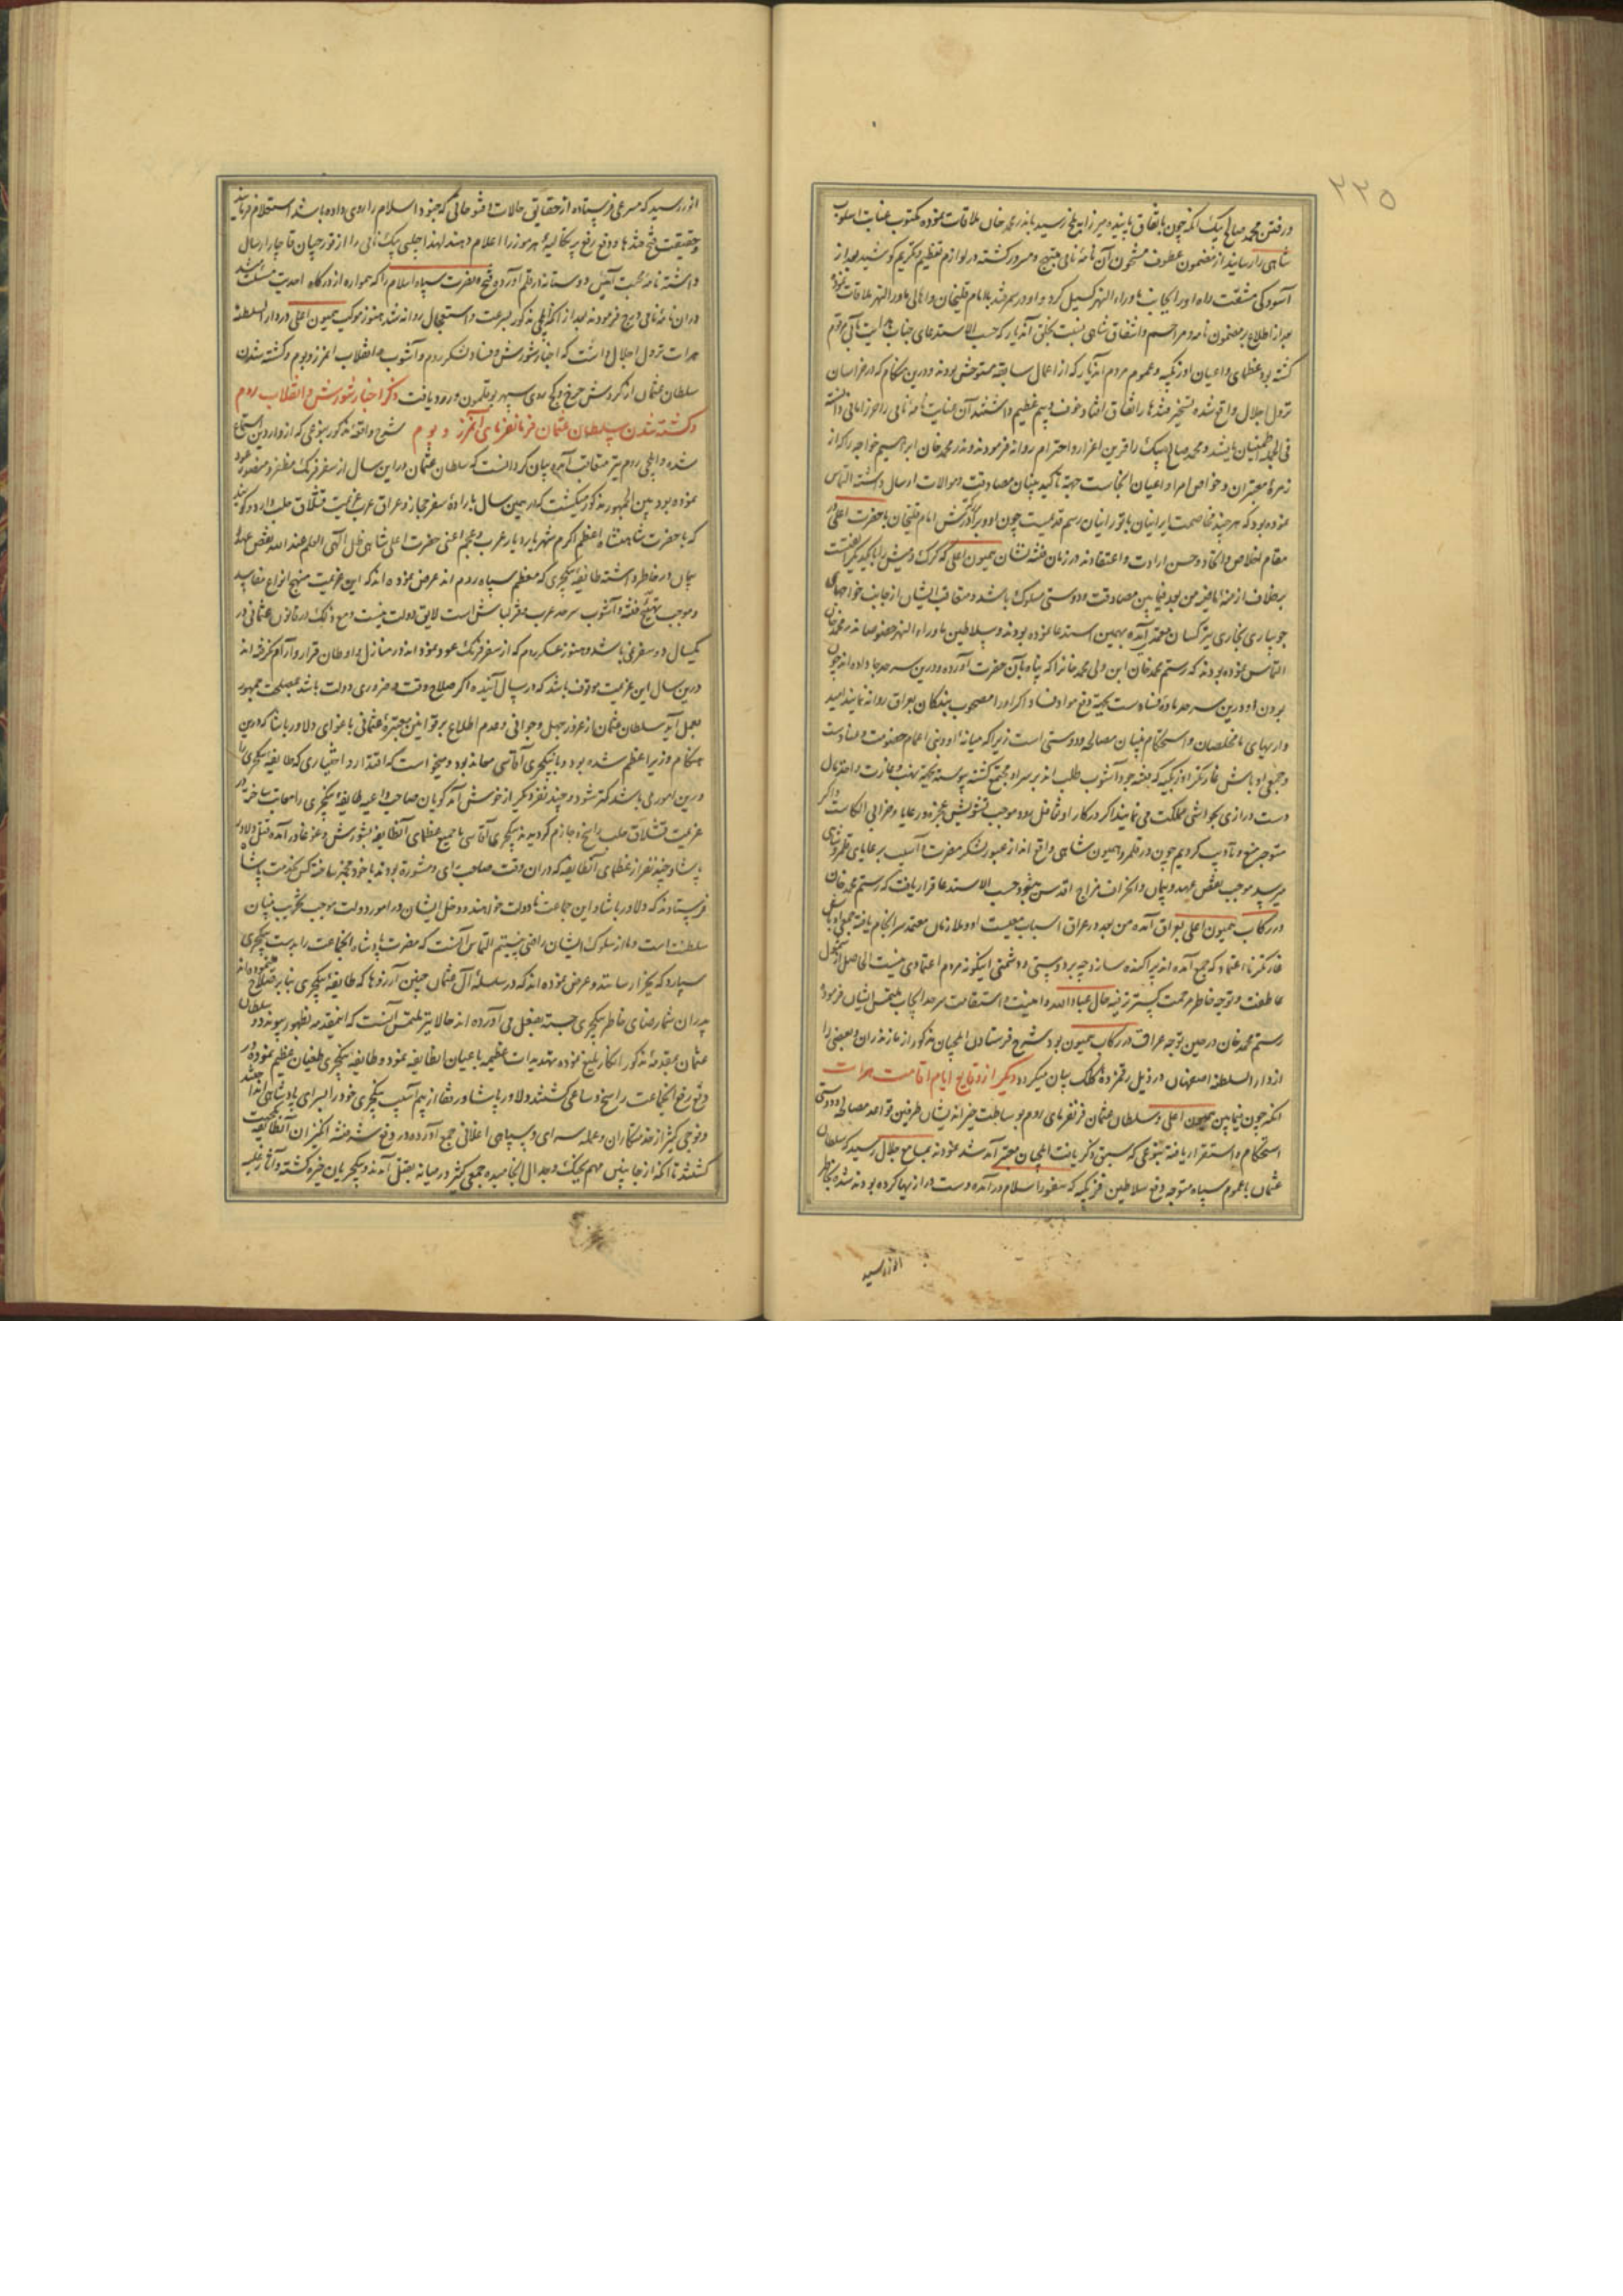 ٢٢٥
در رفتن محمد صالح بیک آنکه چون باتفاق پاینده میرزا ببلخ رسید با ندر محمد خان ملاقات نموده مکتوب عنایت اسلوب
شاهی را رسانید از مضمون عطوفت مشحون آن نامهٔ نامی مبتهج و مسرور گشته در لوازم تعظیم و تکریم کوشید بعد از
آسودگی مشقت راه او را بجانب ماوراء النهر گسیل کرد و او در سمرقند با امام قلیخان و اهالی ماوراء النهر ملاقات نموده
بعد از اطلاع بر مضمون نامه و مراحم و اشفاق شاهی نسبت بخلق آندیار که حسب الاستدعای جناب هدایت مآبی مرقوم
گشته بود عظمای و اعیان اوزبکیه و عموم مردم آندیار که از اعمال سابقه مستوحش بودند و درین هنگام که در خراسان
نزول اجلال واقع شده تسخیر قندهار اتفاق افتاد خوف و بیم عظیم داشتند آن عنایت نامهٔ نامی را حرز امانی دانسته
فی الجمله اطمینان یافتند و محمد صالح بیک را قرین اعزاز و احترام روانه فرمودند و ندر محمد خان ابراهیم خواجه را که از
زمرهٔ معتبران و خواص امرا و اعیان آنجاست جهة تأکید بنیان مصادقت و موالات ارسال داشته التماس
نموده بود که هر چند مخاصمت ایرانیان با تورانیان رسم قدیمست چون او و برادر بزرگش امام قلیخان با حضرت اعلی در
مقام اخلاص و اتحاد و حسن ارادت و اعتقادند در زمان فتنه نشان همیون اعلی که گرک و میش را با یکدیگر الفتست
بر خلاف ازمنه ماضیه من بعد فیمابین مصادقت و دوستی مسلوک باشد و متعاقب ایشان از جانب خواجهای
جویباری بخاری نیز کسان معتمد آمده بهمین استدعا نموده بودند و سلاطین ماوراء النهر خصوصا ندر محمد خان
التماس نموده بودند که رستم محمد خان ابن ولی محمد خانرا که پناه بآن حضرت آورده و درین سرحد جا داده اند چون
بودن او درین سرحد مادهٔ فساد است بجهة دفع مواد فساد اگر او را مصحوب بندگان بعراق روانه نمایند امید
واریهای ما مخلصان و استحکام بنیان مصالحه و دوستی است زیرا که میانهٔ او و بنی اعمام خصومت و عداوتست
و جمعی اوباش غارتگر اوزبکیه که فتنه جو و آشوب طلب اند بر سر او مجتمع گشته پیوسته بجهة نهب و غارت و اخذ مال
دست درازی بحواشی مملکت می نمایند اگر در کار او تغافل رود موجب تشویش عجزه و رعایا و خرابی الکاست و اگر
متوجه منع و تأدیب گردیم چون در قلمرو همیون شاهی واقع اند از عبور لشکر مضرت و آسیب برعایای قلمرو شاهی
میرسد موجب نقض عهد و پیمان و انحراف مزاج اقدس میشود حسب الاستدعا قرار یافت که رستم محمد خان
در رکاب همیون اعلی بعراق آمده من بعد در عراق اسباب معیشت او و ملازمان معتمد سرانجام یافته جمعی اوباش
غارتگر نااعتماد که جمع آمده اند پراکنده سازد چه بر دوستی و دشمنی اینگونه مردم اعتمادی نیست الحاصل از شمول
عاطفت و توجه خاطر مرحمت گستر ترفیه حال عباد الله و امنیت و استقامت سرحد آنجانب ملتمس ایشان فرموده
رستم محمد خان در حین توجه عراق در رکاب همیون بود شرح فرستادن ایلچیان مذکور از مازندران و بعضی را
از دار السلطنه اصفهان در ذیل رقمزدهٔ کلک بیان میگردد دیگر از وقایع ایام اقامت هرات
آنکه چون فیمابین همیون اعلی و سلطان عثمان فرمانفرمای روم بوساطت خیراندیشان طرفین قواعد مصالحه و دوستی
استحکام و استقرار یافته بنوعی که سبق ذکر یافت ایلچیان معتبر آمد شد نمودند بمسامع جلال رسید که سلطان
عثمان با عموم سپاه متوجه دفع سلاطین فرنگیه که بثغور اسلام درآمده دست درازیها کرده بودند شده بخاطر
انور رسید
انور رسید که مسرعی فرستاده از حقایق حالات و فتوحاتی که جنود اسلام را روی داده باشد استعلام فرمایند
و حقیقت فتح قندهار و دفع رفع پرتکالیهٔ هرموز را اعلام دهند لهذا چلبی بیک نامی را از قورچیان قاجار ارسال
داشته نامهٔ محبت آئین دوستانه در قلم آورده فتح و نصرت سپاه اسلام را که همواره از درگاه احدیت مسئلت میشد
در آن نامهٔ نامی درج فرمودند بعد از آنکه ایلچی مذکور بسرعت و استعجال روانه شد هنوز موکب همیون اعلی در دار السلطنه
هرات نزول اجلال داشت که اخبار شورش و فساد لشکر روم و آشوب و انقلاب آنمرز و بوم و کشته شدن
سلطان عثمان از گردش چرخ و کجروی سپهر بوقلمون ورود یافت ذکر اخبار شورش و انقلاب روم
و کشته شدن سلطان عثمان فرمانفرمای آنمرز و بوم شرح واقعه مذکور بنوعی که از واردین استماع
شده و ایلچی روم نیز متعاقب آمده بیان کرد آنست که سلطان عثمان در این سال از سفر فرنگ مظفر و منصور عود
نموده بود بین الجمهور مذکور میگشت که در همین سال بارادهٔ سفر حجاز و عراق عرب عزیمت قشلاق حلب دارد و گویند
که با حضرت شاهنشاه اعظم اکرم شهریار دیار عرب و عجم اعنی حضرت اعلی شاهی ظل الهی العلم عند الله نقض عهد و
پیمان در خاطر داشته طایفهٔ ینکچری که معظم سپاه روم اند عرض نموده اند که این عزیمت منهج انواع مفاسد
و موجب تهییج فتنه و آشوب سرحد عرب و قزلباش است لایق دولت نیست و مع ذلک در قانون عثمانی در
یکسال دو سفر نمی باشد و هنوز عسکر روم که از سفر فرنگ عود نموده اند در منازل و اوطان قرار و آرام نگرفته اند
درین سال این عزیمت موقوف باشد که در سال آینده اگر صلاح وقت و ضروری دولت باشد بمصلحت جمهور
بعمل آید سلطان عثمان از غرور جهل و جوانی و عدم اطلاع بر قوانین معتبرهٔ عثمانی باغوای دلاور پاشا که درین
هنگام وزیر اعظم شده بود و با ینکچری آقاسی معاند بود و میخواست که اقتدار و اختیاری که طایفهٔ ینکچری را
درین امور می باشد کمتر شود و چند نفر دیگر از خوش آمدگویان صاحب داعیه طایفهٔ ینکچری را معاتب ساخته در
عزیمت قشلاق حلب راسخ و جازم گردیدند ینکچری آقاسی با جمیع عظمای آنطایفه بشورش و غوغا درآمده قتل دلاور
پاشا و چند نفر از عظمای آنطایفه که در آن وقت صاحب رای و مشوره بودند با خود مخمر ساخته کس بخدمت پادشاه
فرستادند که دلاور پاشا و این جماعت نادولت خواهند و دخل ایشان در امور دولت موجب تخریب بنیان
سلطنت است و ما از سلوک ایشان راضی نیستیم التماس آنست که حضرت پادشاه آنجماعت را بدست ینکچری
سپارد که بجزا رسانند و عرض نموده اند که در سلسلهٔ آل عثمان چنین آرزوها که طایفهٔ ینکچری بنابر صلاح مینموده اند
پدران شما رضای خاطر ینکچری جسته بفعل می آورده اند حالا نیز ملتمس آنست که اینمقدمه بظهور پیوندد سلطان
عثمان بمقدمهٔ مذکور انکار بلیغ نموده تهدیدات عظیمه باعیان آنطایفه نمود و طایفهٔ ینکچری طغیان عظیم نموده در
دفع و رفع آنجماعت راسخ و ساعی گشتند دلاور پاشا و رفقا از بیم آسیب ینکچری خود را بسرای پادشاهی انداختند
و فوجی کثیر از خدمتکاران و عمله سرای و سپاهی اعلانی جمع آورده در دفع شر فتنه انگیزان آنطایفه بجهت
گشتند تا آنکه از جانبین مهم بجنگ و جدال انجامیده جمعی کثیر در میانه بقتل آمدند و ینکچریان خیره گشته و آثار غلبه